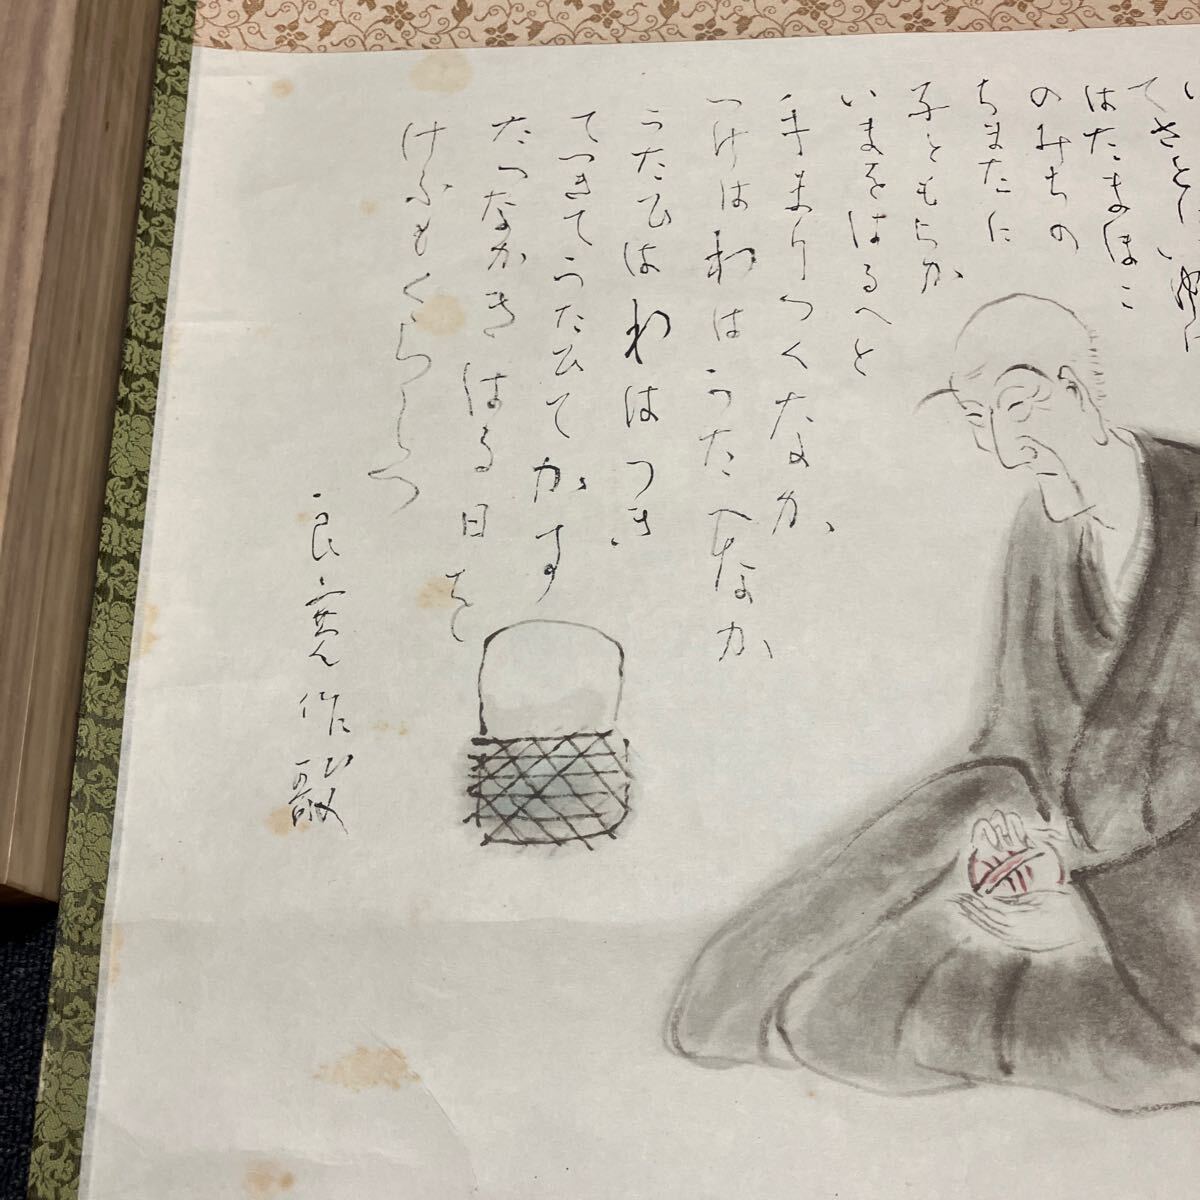 てさとにいゆけ
はたまほこ
のみちの
ちまたに
子ともらか
いまをはるへと
手まりつくなか
つけはわはうたへなか
うたひはわはつき
てつきてうたひてかす
たつなかきはる日を
けふもくらしつ
良寛作歌